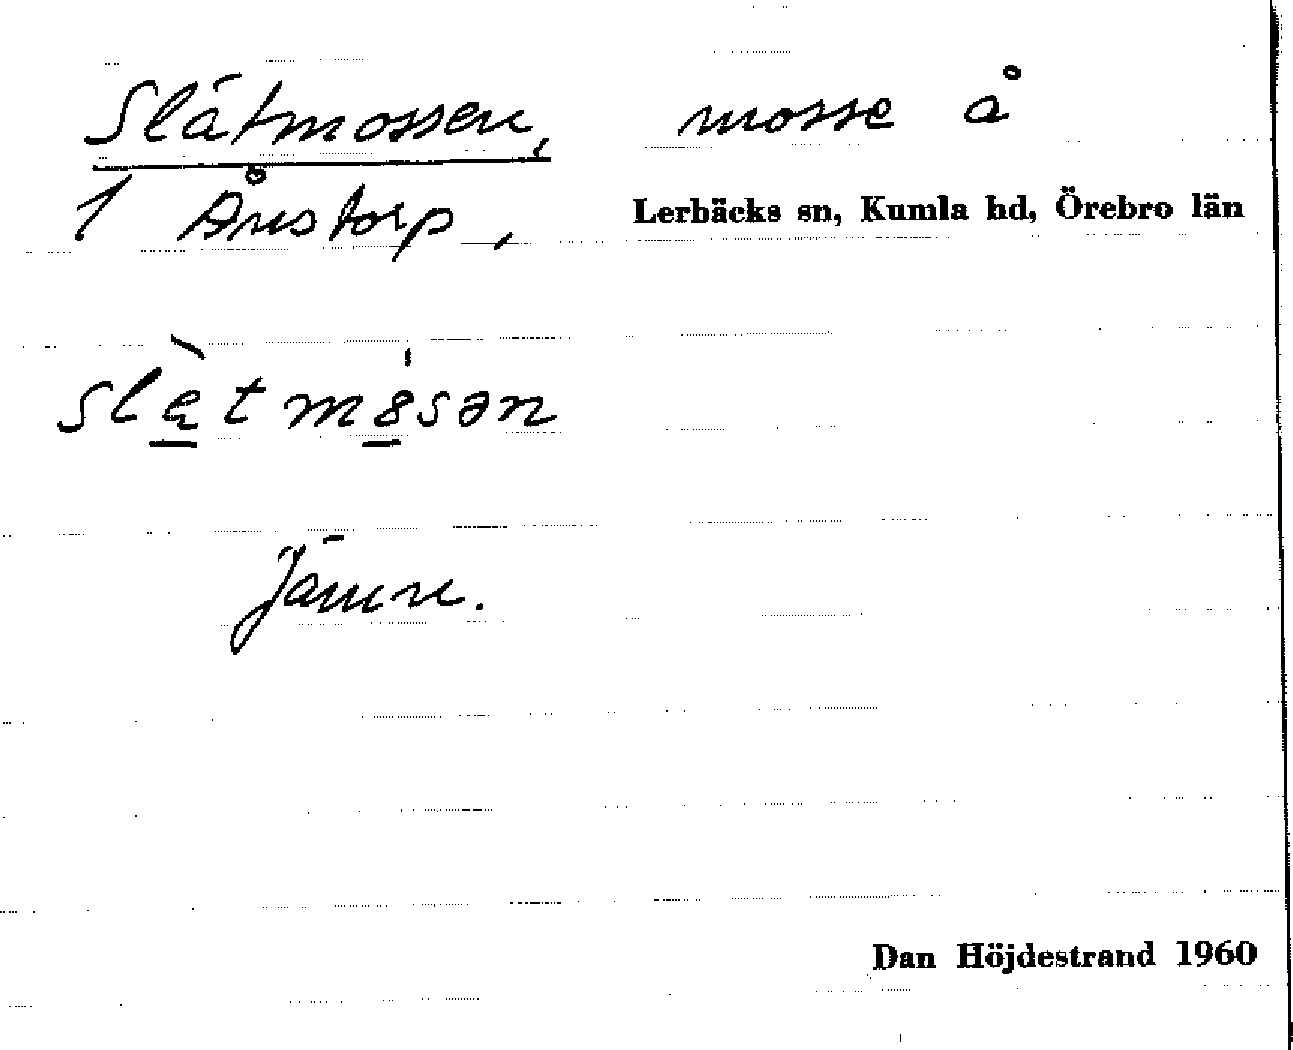 Slätmossen, mosse å
1 Ånstorp, Lerbäcks sn, Kumla hd, Örebro län
Jämn.
Dan Höjdestrand 1960